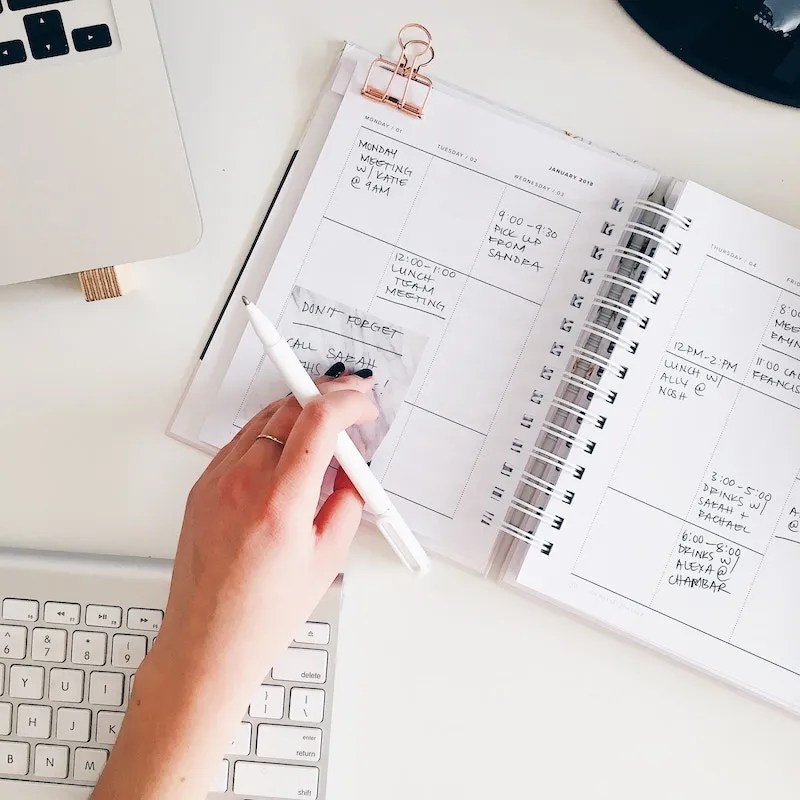 MONDAY / 01
MONDAY
MEETING
W/ KATIE
@ 9AM
TUESDAY / 02
12:00-1:00
LUNCH
TEAM
MEETING
JANUARY 2018
WEDNESDAY / 03
9:00-9:30
PICK UP
FROM
SANDRA
DON'T FORGET
CALL SARAH
THURSDAY / 04
12PM-2PM
LUNCH W/
ALLY @
NOSH
3:00-5:00
DRINKS W/
SARAH +
RACHAEL
6:00-8:00
DRINKS W/
ALEXA @
CHAMBAR
11:00
6
&
7
*
8
(
9
Y
U
I
H
J
K
B
N
M
delete
enter
return
shift